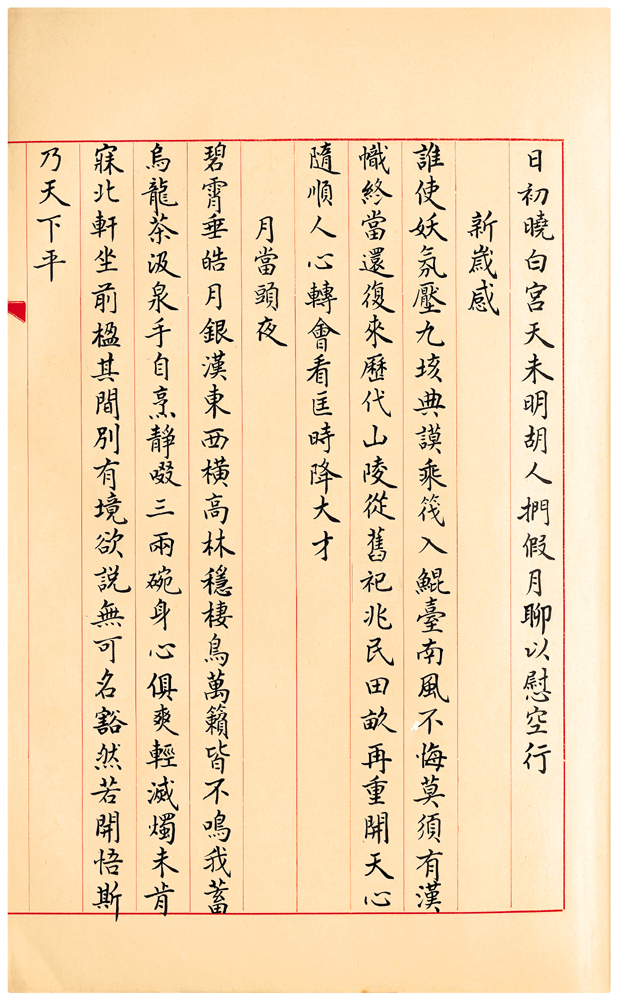 日初曉白宮天未明胡人捫假月聊以慰空行
新嵗感
誰使妖氛壓九垓典謨乘筏入鯤臺南風不悔莫須有漢
幟終當還復來歷代山陵從舊祀兆民田畝再重開天心
隨順人心轉會看匡時降大才
月當頭夜
碧霄垂皓月銀漢東西橫高林穩棲鳥萬籟皆不鳴我蓄
烏龍茶汲泉手自烹靜啜三兩碗身心俱爽輕滅燭未肯
寐北軒坐前楹其間別有境欲説無可名豁然若開悟斯
乃天下平